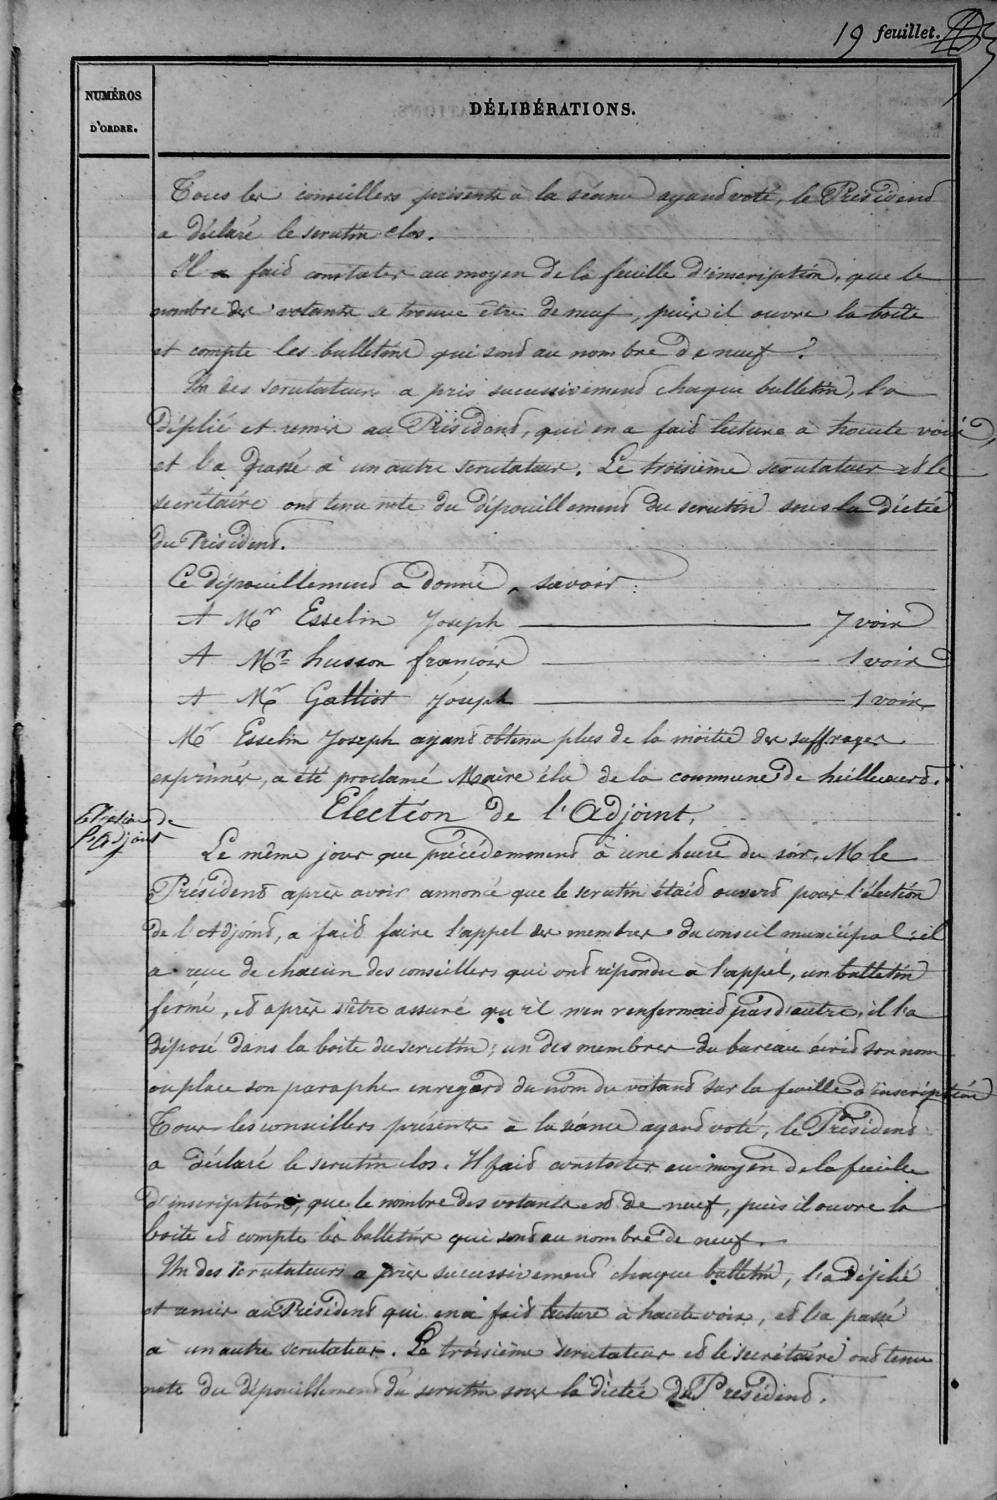 19 feuillet.
NUMÉROS
D'ORDRE.
DÉLIBÉRATIONS.
Tous les conseillers présents à la séance ayant voté, le Président
a déclaré le scrutin clos.
Il a fait constater au moyen de la feuille d'inscription, que le
nombre des votants se trouve être de neuf, puis il ouvre la boite
et compte les bulletins qui sont au nombre de neuf.
Un des scrutateurs a pris successivement chaque bulletin, l'a
déplié et remis au Président, qui en a fait lecture à haute voix,
et l'a passé à un autre scrutateur. Le troisième scrutateur et le
secrétaire ont tenu note du dépouillement du scrutin sous la dictée
du Président.
Ce dépouillement a donné, savoir :
A Mr Esselin Joseph 7 voix
A Mr husson françois 1 voix
A Mr Galliot Joseph 1 voix
Mr Esselin Joseph ayant obtenu plus de la moitié des suffrages
exprimés, a été proclamé Maire élu de la commune de
Election de l'Adjoint.
Election de
l'Adjoint
Le même jour que précédemment à une heure du soir, M le
Président après avoir annoncé que le scrutin était ouvert pour l'élection
de l'Adjoint, a fait faire l'appel des membres du conseil municipal : il
a reçu de chacun des conseillers qui ont répondu à l'appel, un bulletin
fermé, et après s'être assuré qu'il n'en renfermait pas d'autre, il l'a
déposé dans la boite du scrutin; un des membres du bureau écrit son nom
ou place son paraphe en regard du nom du votant sur la feuille d'inscription
Tous les conseillers présents à la séance ayant voté, le Président
a déclaré le scrutin clos. Il fait constater au moyen de la feuille
d'inscription, que le nombre des votants est de neuf, puis il ouvre la
boite et compte les bulletins qui sont au nombre de neuf.
Un des scrutateurs a pris successivement chaque bulletin, l'a déplié
et remis au Président qui en a fait lecture à haute voix, et l'a passé
à un autre scrutateur. Le troisième scrutateur et le secrétaire ont tenu
note du dépouillement du scrutin sous la dictée du Président.